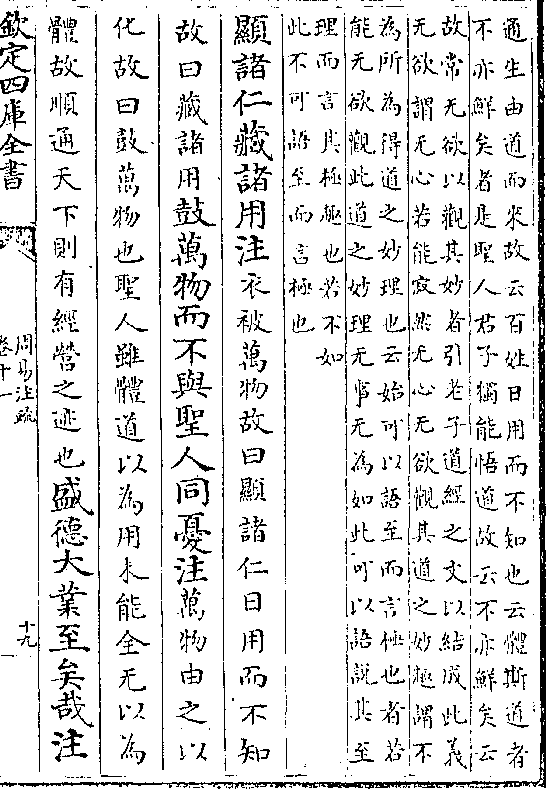 通生由道而來故云百姓日用而不知也云體斯道者
不亦鮮矣者是聖人君子獨能悟道故云不亦鮮矣云
故常无欲以觀其妙者引老子道經之文以結成此義
无欲謂无心若能寂然无心无欲觀其道之妙極謂不
為所為得道之妙理也云始可以語至而言極也者若
能无欲觀此道之妙理无事无為如此可以語說其至
理而言其極趣也若不如
此不可語至而言極也
顯諸仁藏諸用注衣被萬物故曰顯諸仁日用而不知
故曰藏諸用鼓萬物而不與聖人同憂注萬物由之以
化故曰鼓萬物也聖人雖體道以為用未能全无以為
體故順通天下則有經營之迹也盛德大業至矣哉注
欽定四庫全書
周易注疏
卷十一
十九